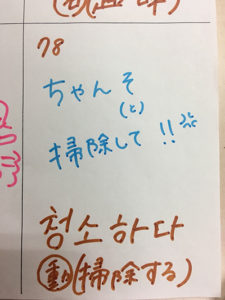 78
ちゃんそ
(と)
掃除して!!
청소하다
動(掃除する)